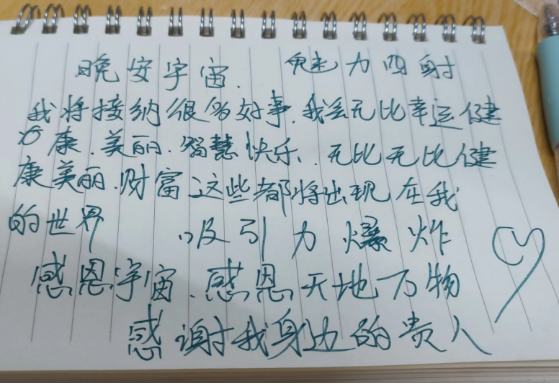 晚安宇宙. 魅力四射
我将接纳很多好事.我会无比幸运健
康.美丽.智慧快乐.无比无比健
康美丽.财富这些都将出现在我
的世界 吸引力爆炸
感恩宇宙.感恩天地万物
感谢我身边的贵人